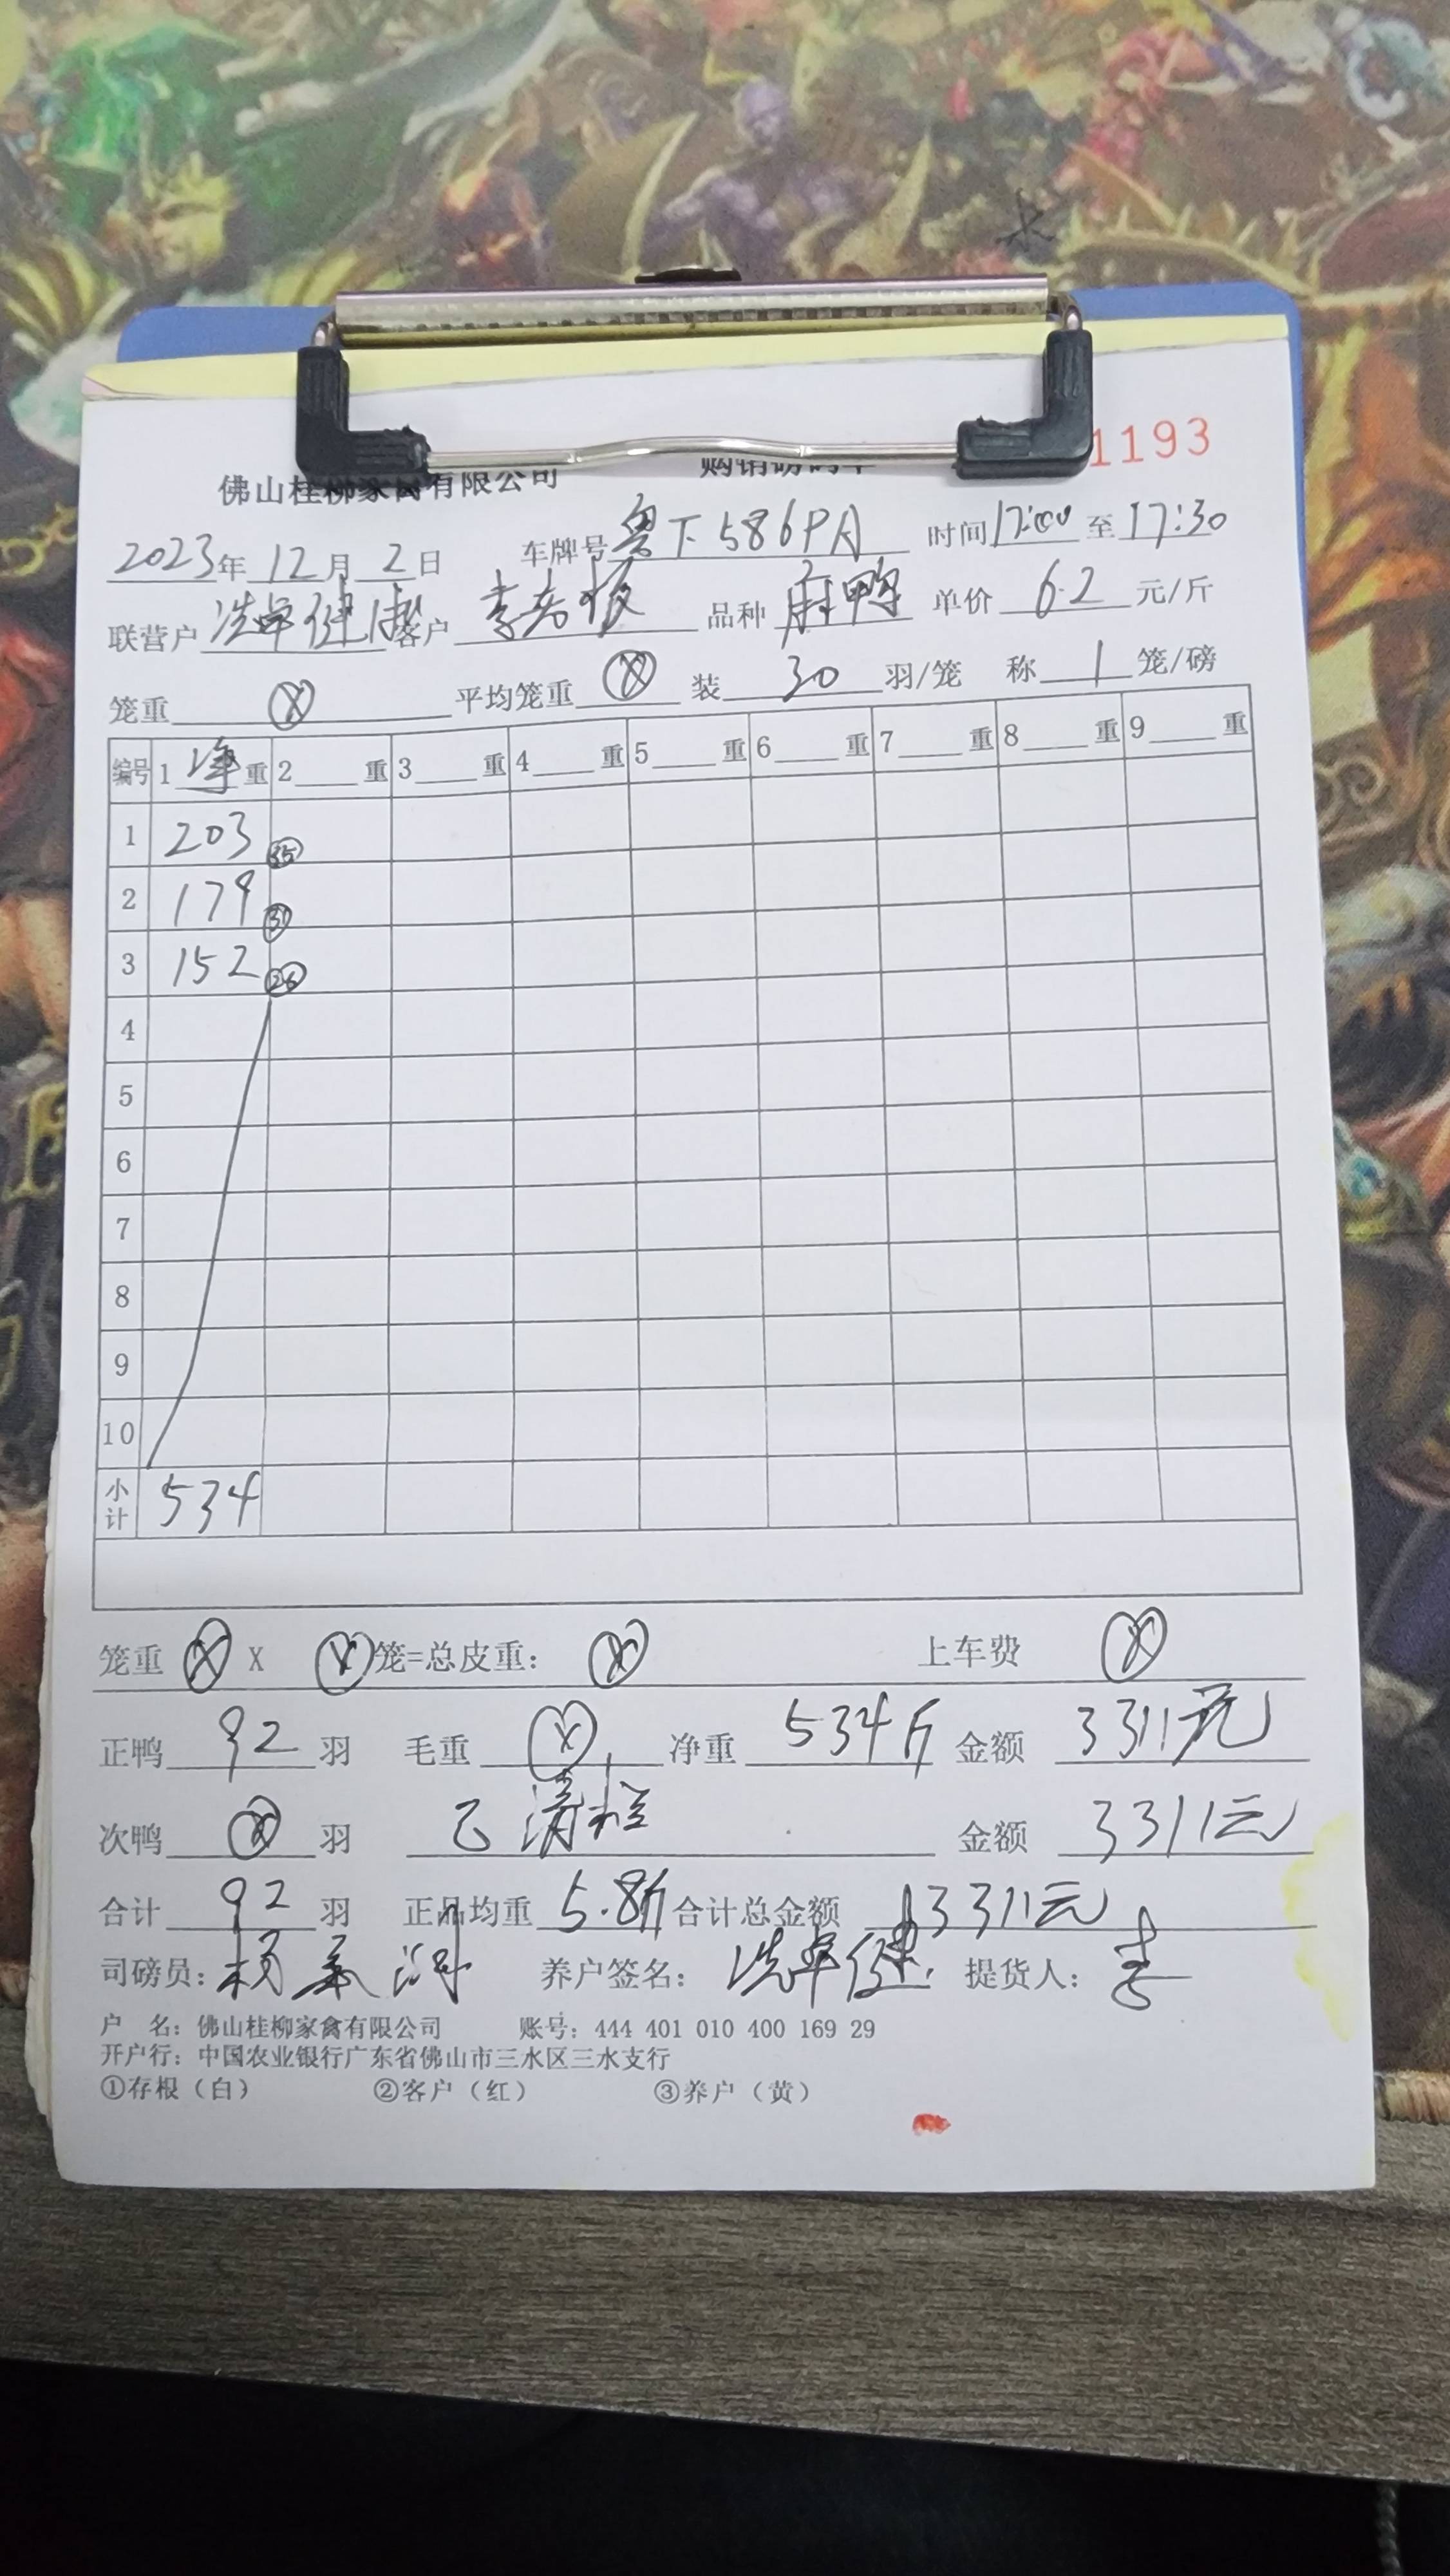 1193
佛山桂柳家禽有限公司 购销磅码单
2023年 12月 2日 车牌号 粤 586PA 时间 17:00 至 17:30
联营户 冼卓健 客户 李老板 品种 麻鸭 单价 6.2 元/斤
笼重 ⓧ 平均笼重 ⓧ 装 30 羽/笼 称 1 笼/磅
编号 1 净 重 2 重 3 重 4 重 5 重 6 重 7 重 8 重 9 重
1 203 35
2 179 31
3 152 26
4
5
6
7
8
9
10
小计 534
笼重 ⓧ X ⓧ 笼=总皮重: ⓧ 上车费 ⓧ
正鸭 92 羽 毛重 ⓧ 净重 534斤 金额 3311元
次鸭 ⓧ 羽 已清栏 金额 3311元
合计 92 羽 正品均重 5.8斤 合计总金额 3311元
司磅员: 杨 养户签名: 冼卓健 提货人: 李
户 名: 佛山桂柳家禽有限公司 账号: 444 401 010 400 169 29
开户行: 中国农业银行广东省佛山市三水区三水支行
①存根（白） ②客户（红） ③养户（黄）